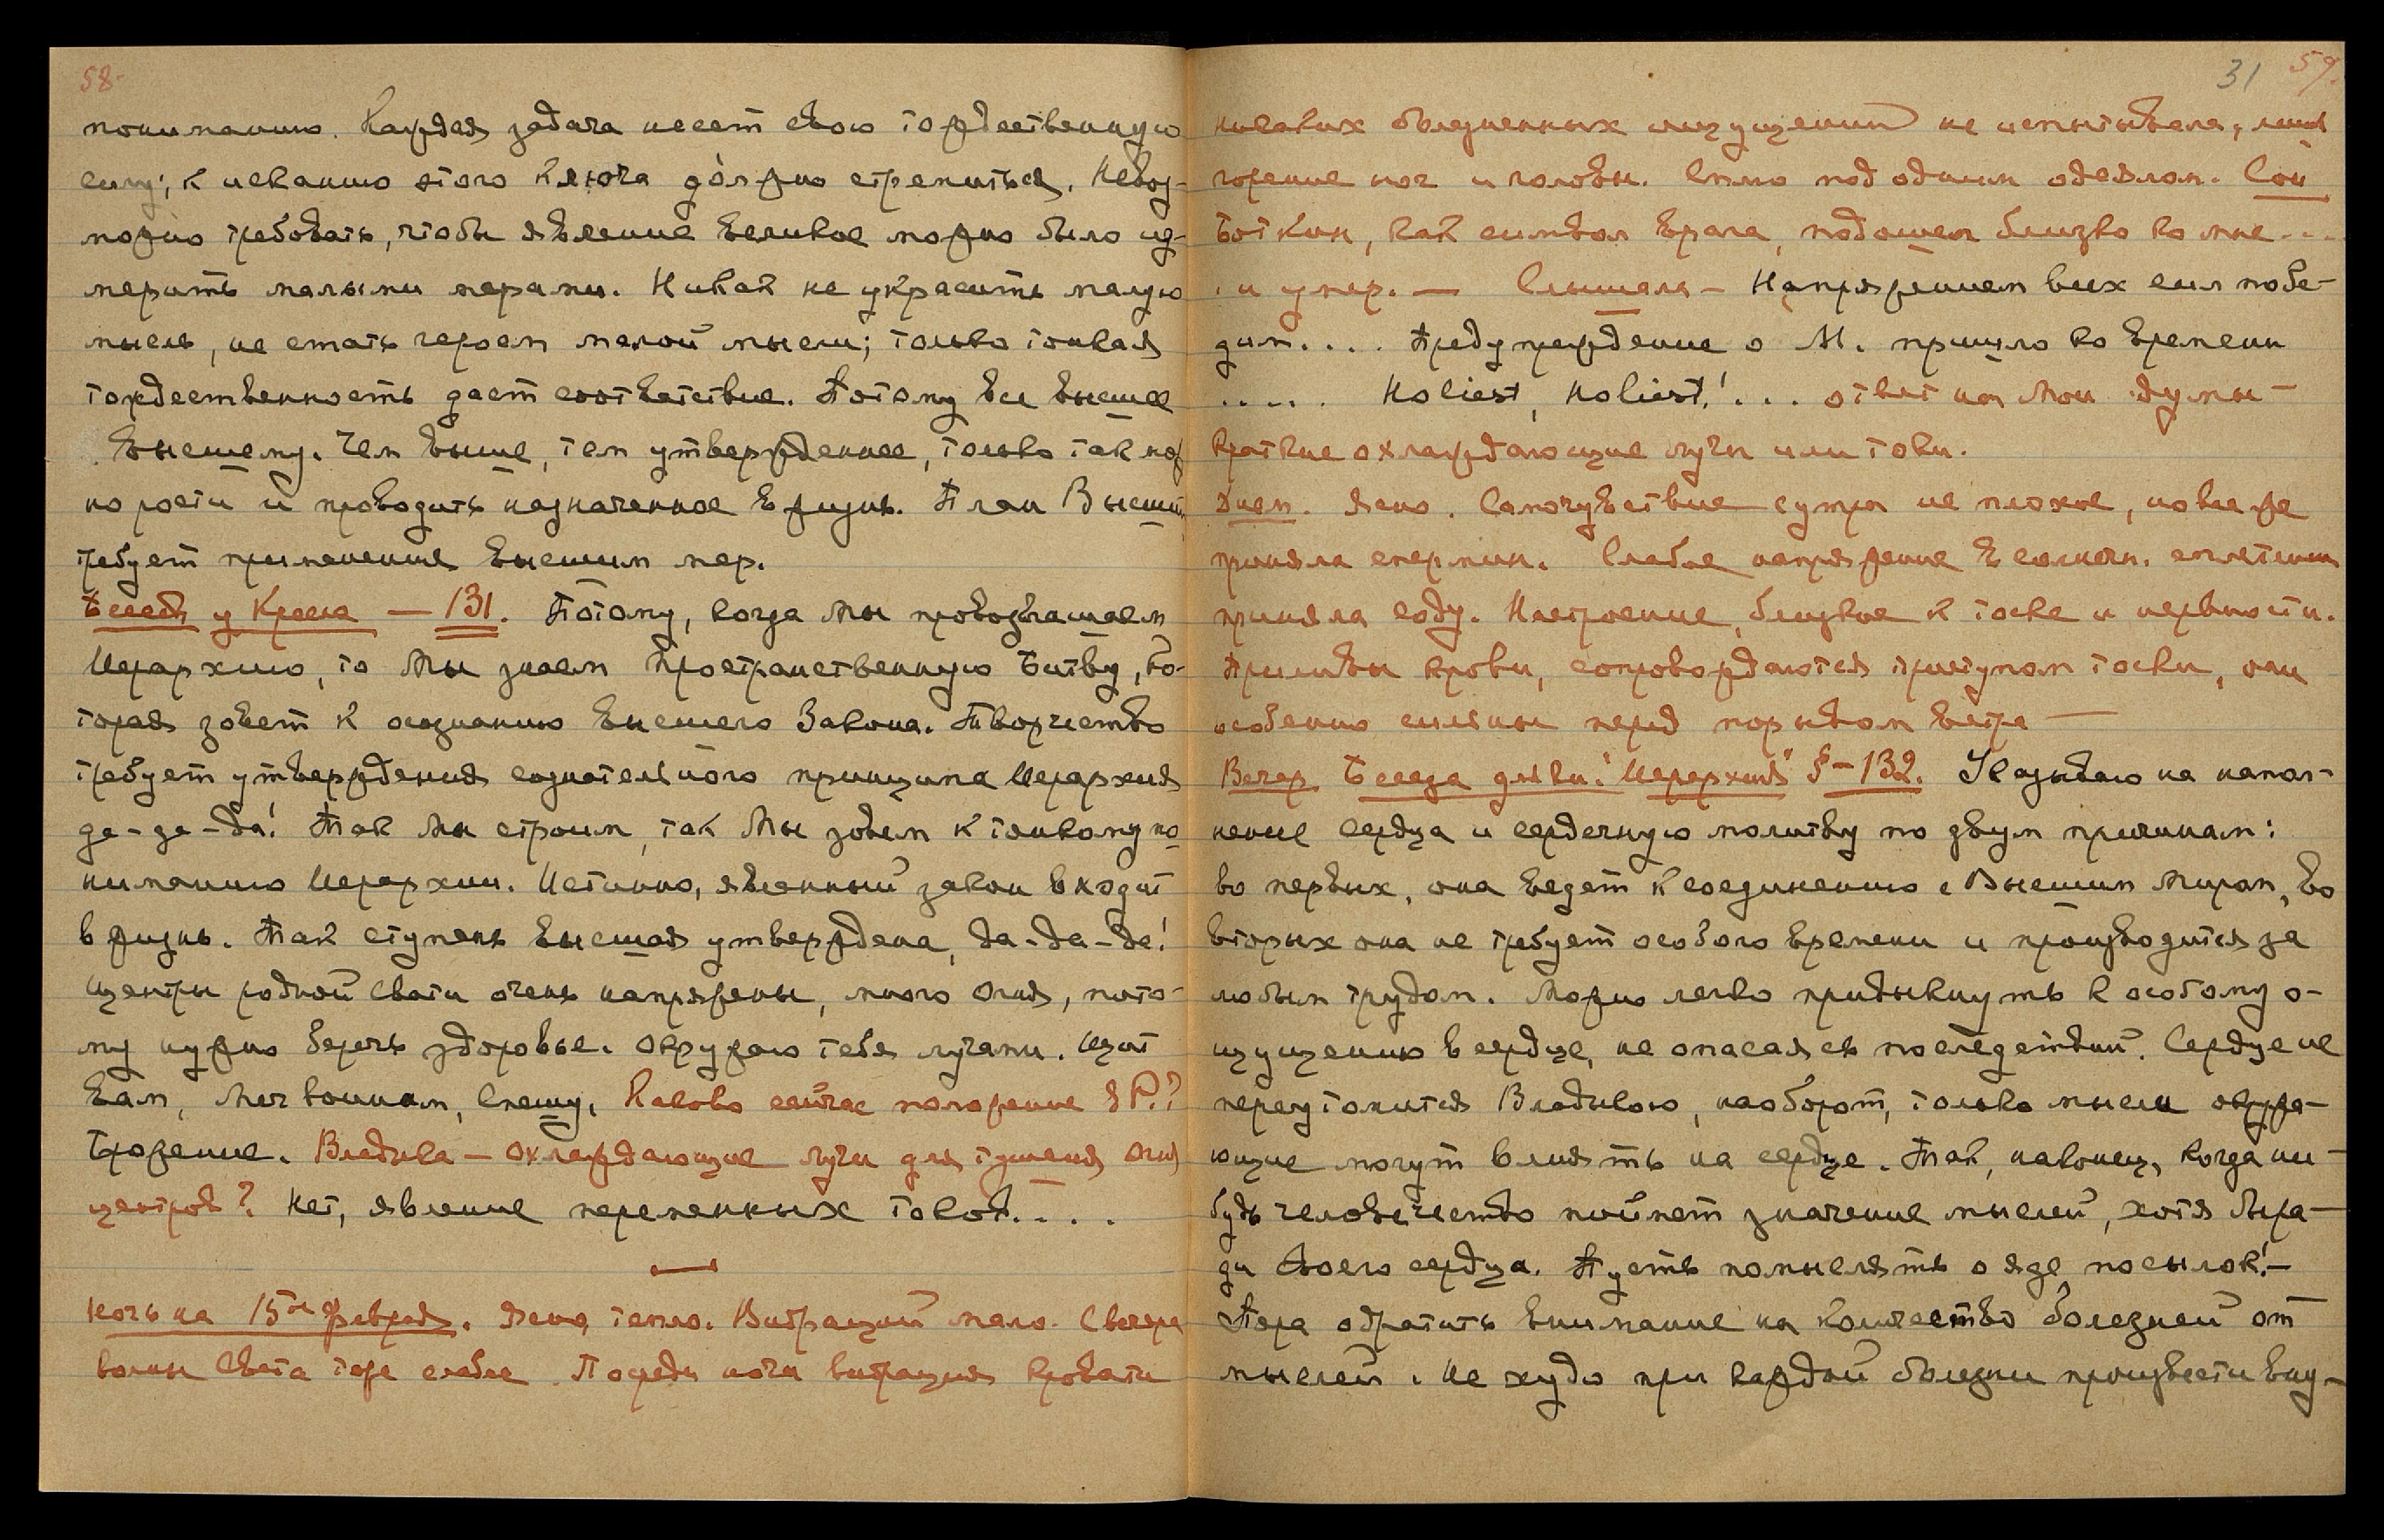 58.
пониманию. Каждая задача несет свою тождественную
силу; к исканию этого ключа должно стремиться. Невоз-
можно требовать, чтобы явление великое можно было из-
мерить малыми мерами. Никак не украсить малую
мысль, не стать героем малой мысли; только тонкая
тождественность дает соответствие. Потому все высшее
высшему. Чем выше, тем утвержденнее, только так мож
но рости и проводить назначенное в жизнь. План Высший
требует применения высшим мер.
Беседа у Крыла — 131. Потому, когда Мы провозглашаем
Иерархию, то Мы знаем Пространственную Битву, ко-
торая зовет к осознанию Высшего Закона. Творчество
требует утверждения сознательного принципа Иерархия
да-да-да! Так Мы строим, так Мы зовем к тонкому по
ниманию Иерархии. Истинно, явленный закон входит
в жизнь. Так ступень высшая утверждена, да-да-да!
Центры родной Свати очень напряжены, много огня, пото-
му нужно беречь здоровье. Окружаю тебя лучами. Щит
вам, Меч воинам, Спешу. Каково сейчас положение я Р.?
Брожение. Владыка — охлаждающие лучи для тушения огня
центров? Нет, явление переменных токов....
Ночь на 15ое февраля. Ясно, тепло. Вибраций мало. С вечера
волны Света тоже слабее. Посреди ночи вибрация кровати
31 59.
никаких болезненных ощущений не испытывала, лишь
горение ног и головы. Сплю под одним одеялом. Сон
Боткин, как символ врага, подошел близко ко мне...
. и умер. — Слышала — Напряжением всех сил побе-
дим.... Предупреждение о М. пришло ко времени
..... Holiest, Holiest!... ответ на мои думы —
краткие охлаждающие лучи или токи.
Днем. Ясно. Самочувствие с утра не плохое, но все же
приняла спермин. Слабое напряжение в солнечн. сплетении
приняла соду. Настроение, близкое к тоске и нервности.
Приливы крови, сопровождаются приступом тоски, они
особенно сильны перед порывом ветра —
Вечер Беседа для кн. "Иерархия" § — 132. Указываю на напол-
нение сердца и сердечную молитву по двум причинам:
во первых, она ведет к соединению с Высшим Миром, во
вторых она не требует особого времени и производится за
любым трудом. Можно легко привыкнуть к особому о-
щущению в сердце, не опасаясь последствий. Сердце не
переутомится Владыкою, наоборот, только мысли окружа-
ющие могут влиять на сердце. Так, наконец, когда ни-
будь человечество поймет значение мыслей, хотя бы ра-
ди своего сердца. Пусть помыслять о яде посылок! —
Пора обратить внимание на количество болезней от
мыслей. Не худо при каждой болезни произвести вну-